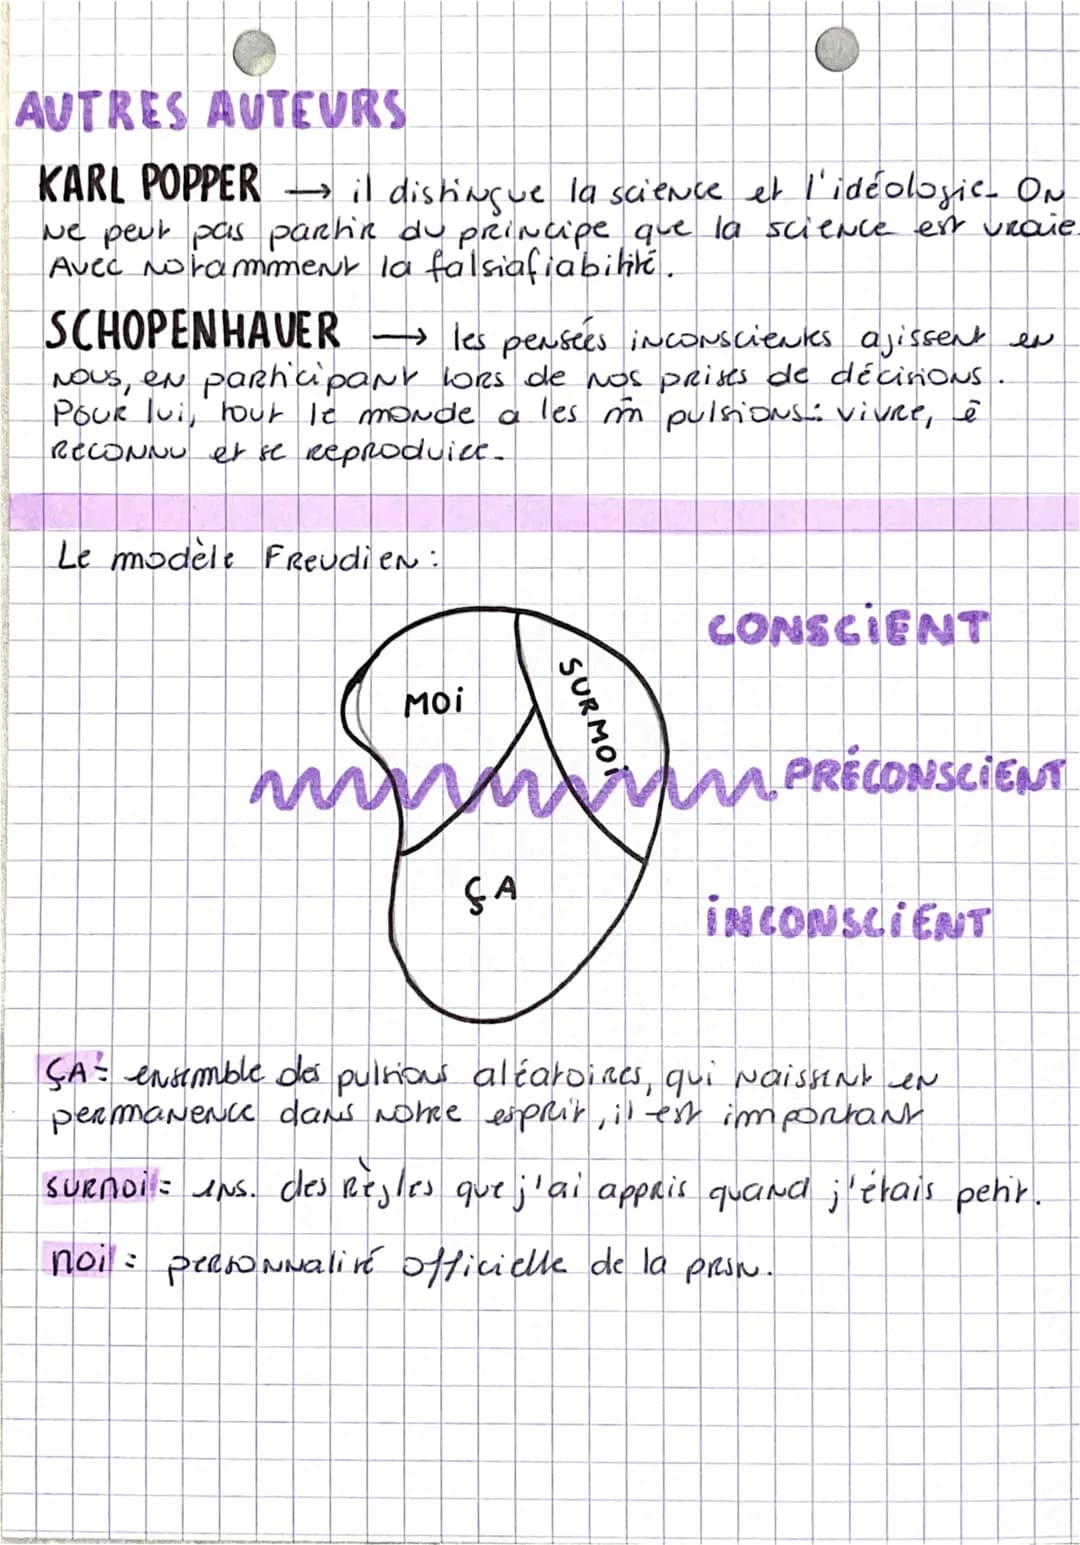 AUTRES AUTEURS
KARL POPPER → il distingue la science et l'idéologie. ON
ne peut pas partir du principe que la science est vraie.
Avec notamment la falsiafiabilité.
SCHOPENHAUER → les pensées inconscientes agissent en
nous, en participant lors de nos prises de décisions.
Pour lui, tout le monde a les m̂ pulsions : vivre, ê
reconnu et se reproduire.
Le modèle Freudien :
CONSCIENT
MOI
SURMOI
PRÉCONSCIENT
ÇA
INCONSCIENT
ÇA = ensemble des pulsions aléatoires, qui naissent en
permanence dans notre esprit, il est important
SURMOI = ens. des règles que j'ai appris quand j'étais petit.
MOI = personnalité officielle de la prsn.